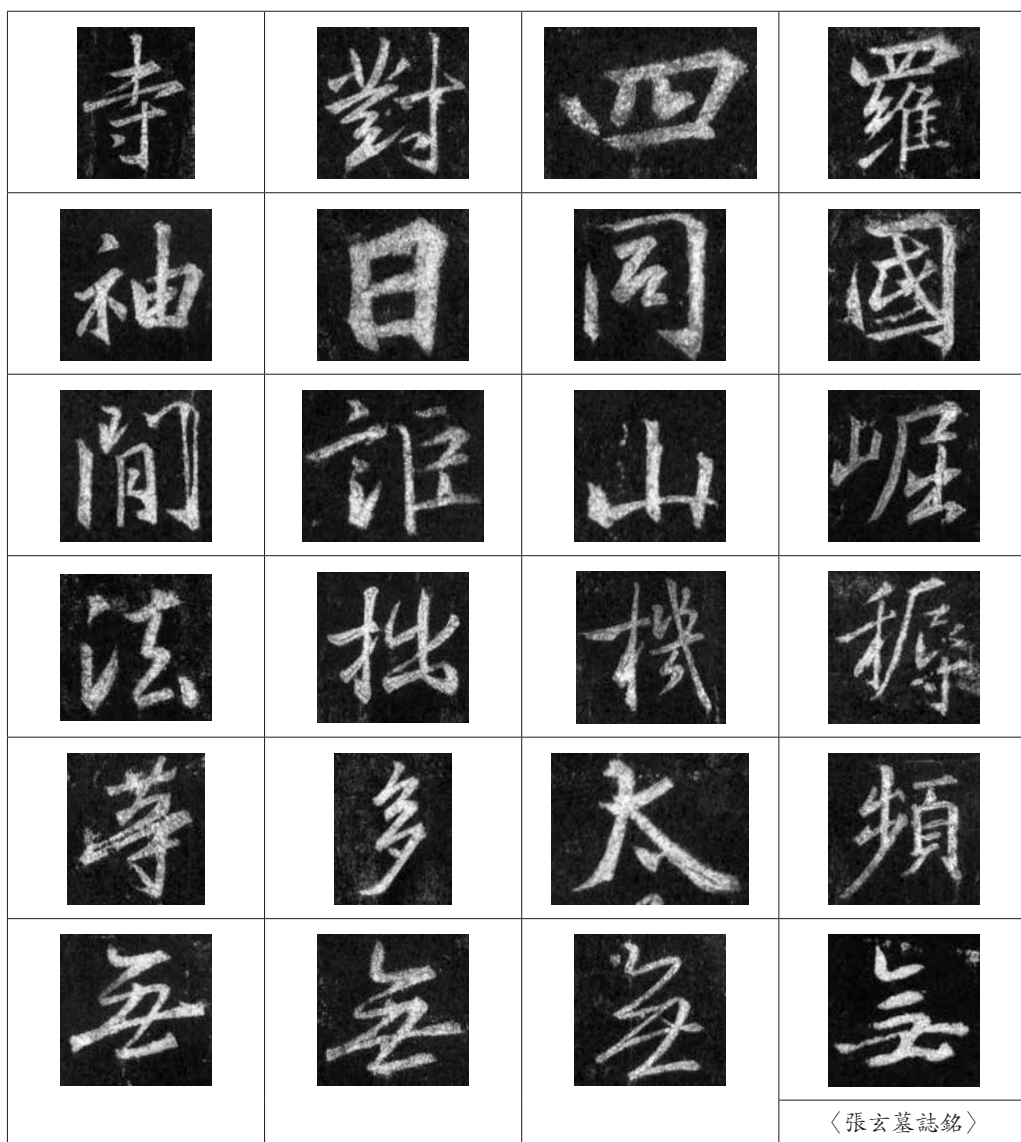 寺 對 四 羅
袖 日 同 國
閒 詎 山 崛
法 拙 機
等 多 太 頻
無 無 無 無
〈張玄墓誌銘〉